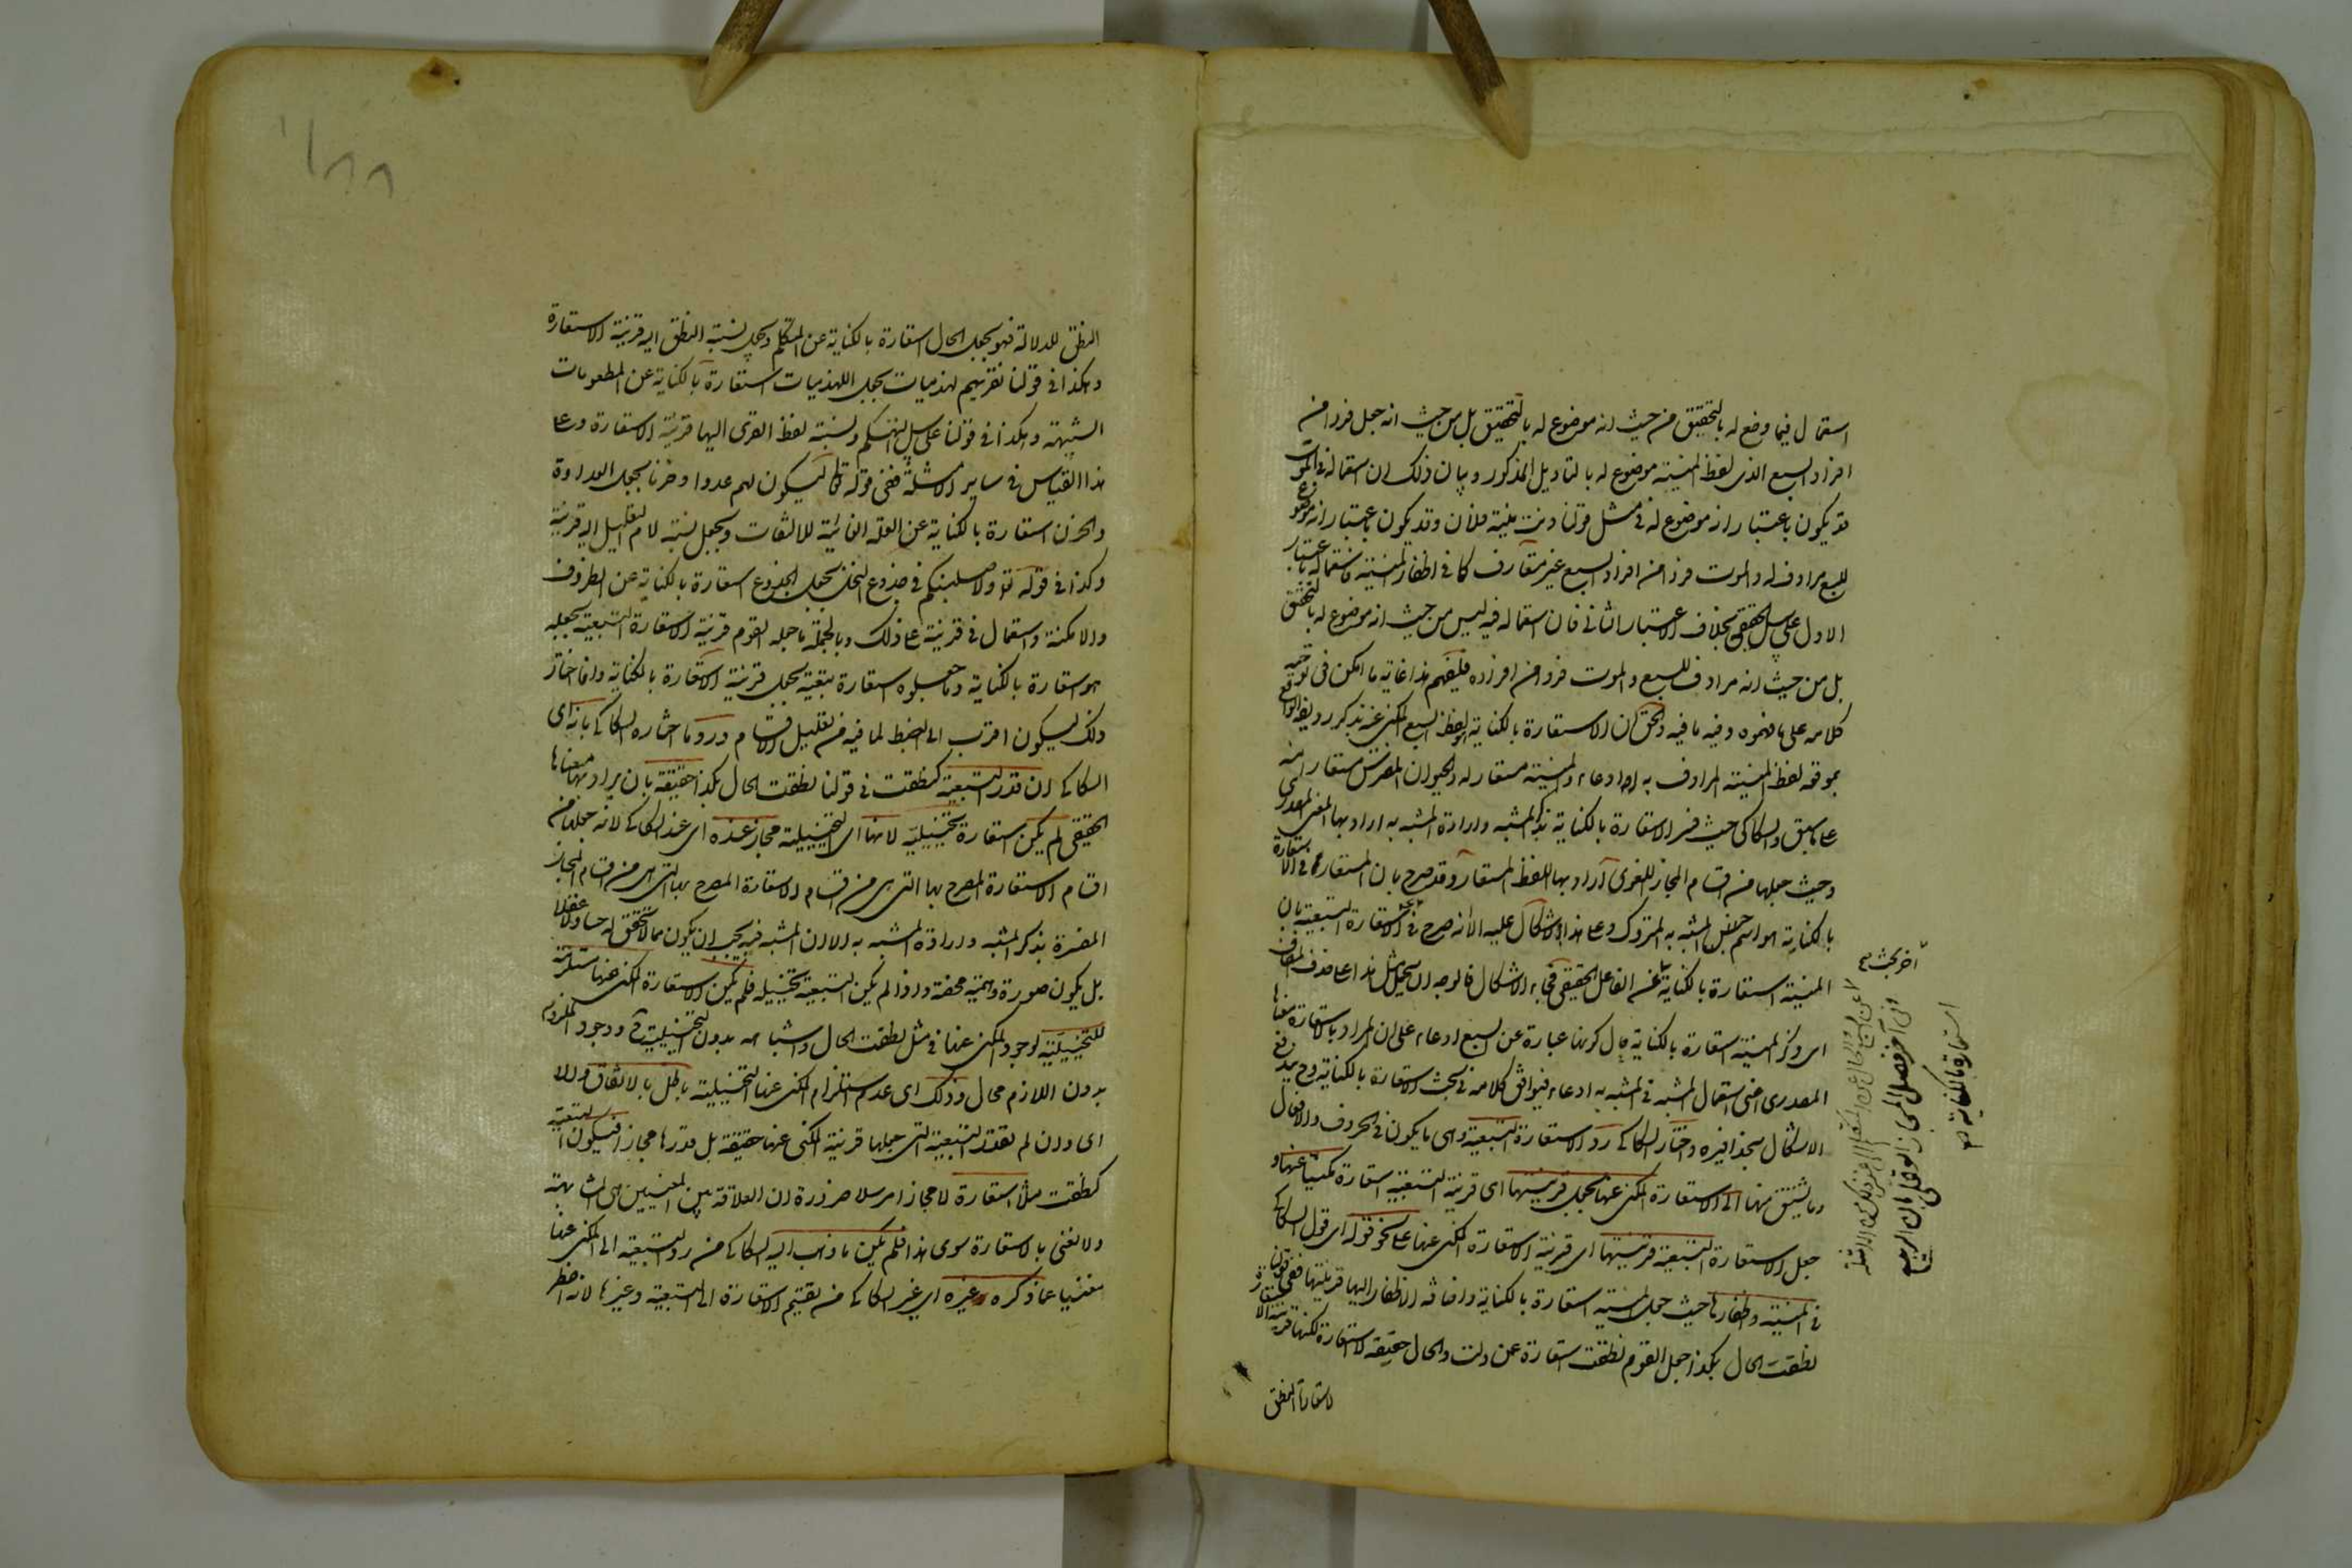 استعمال فيما وضع له بالتحقيق من حيث انه موضوع له بالتحقيق بل من حيث انه جعل فردا من
افراد السبع الذى لفظ المنية موضوع له بالتاويل المذكور وبيان ذلك ان استعماله فى الموت
قد يكون باعتبار انه موضوع له فى مثل قولنا دنت منية فلان وقد يكون باعتبار انه موضوع
للسبع مرادف له والموت فردا من افراد السبع غير متعارف كما فى اظفار المنية فاستعماله باعتبار
الاول على سبيل الحقيقى بخلاف الاعتبار الثانى فان استعماله فيه ليس من حيث انه موضوع له بالتحقيق
بل من حيث انه مرادف للسبع والموت فرد من افراده فليفهم هذا غاية ما امكن فى توجيه
كلامه على ما فهموه وفيه ما فيه والحق ان الاستعارة بالكناية لفظ السبع المكنى عنه بذكر رديفه الواقع
بموقعه لفظ المنية المرادف به ادعاء والمنية مستعار له والحيوان المفترس مستعار منه
على ما سبق والسكاكى حيث فسر الاستعارة بالكناية بذكر المشبه وارادة المشبه به اراد بها المعنى المصدرى
وحيث جعلها من اقسام المجاز اللغوى اراد بها اللفظ المستعار وقد صرح بان المستعار فى الاستعارة
بالكناية هو اسم جنس المشبه به المتروك وعلى هذا لا اشكال عليه الا انه صرح فى الاستعارة التبعية بان
المنية استعارة بالكناية عن الفاعل الحقيقى فجاء الاشكال فالوجه ان يحمل مثل هذا على حذف المضاف
اى ذكر المنية استعارة بالكناية حال كونها عبارة عن السبع ادعاء على ان المراد بالاستعارة معناها
المصدرى اعنى استعمال المشبه فى المشبه به ادعاء فيوافق كلامه فى بحث الاستعارة بالكناية وح يندفع
الاشكال بحذافيره واختار السكاكى رد الاستعارة التبعية وهى ما يكون فى الحروف والافعال
وما يشتق منها الى الاستعارة المكنى عنها بجعل قرينتها اى قرينة التبعية استعارة مكنيا عنها و
جعل الاستعارة التبعية قرينتها اى قرينة الاستعارة المكنى عنها على نحو قوله اى قول السكاكى
فى المنية واظفارها حيث جعل المنية استعارة بالكناية واضافة الاظفار اليها قرينتها ففى قولنا
نطقت الحال بكذا جعل القوم نطقت استعارة عن دلت والحال حقيقة لا استعارة لكنها قرينة لاستعارة
لاستعارة النطق
آخر بحث
وفى آخر فصل المجاز العقلى بان الربيع
استعارة بالكناية
النطق للدلالة فهو يجعل الحال استعارة بالكناية عن المتكلم ويجعل نسبة النطق اليه قرينة الاستعارة
وهكذا فى قولنا نقريهم لهذميات يجعل اللهذميات استعارة بالكناية عن المطعومات
الشهية وهكذا فى قولنا على سبيل التهكم ونسبة لفظ القرى اليها قرينة الاستعارة وعلى
هذا القياس فى ساير الامثلة ففى قوله تعالى ليكون لهم عدوا وحزنا يجعل العداوة
والحزن استعارة بالكناية عن العلة الغائية للالتقاط ويجعل نسبة لام التعليل اليه قرينة
وكذا فى قوله تع ولاصلبنكم فى جذوع النخل يجعل الجذوع استعارة بالكناية عن الظروف
والامكنة واستعمال فى قرينة على ذلك وبالجملة ما جعله القوم قرينة الاستعارة التبعية يجعله
هو استعارة بالكناية وما جعلوه استعارة تبعية يجعله قرينة الاستعارة بالكناية وانما اختار
ذلك ليكون اقرب الى الضبط لما فيه من تقليل الاقسام ورد ما اختاره السكاكى بانه اى
السكاكى ان قدر التبعية كنطقت فى قولنا نطقت الحال بكذا حقيقة بان يراد بها معناها
الحقيقى لم يكن استعارة تخييلية لانها اى التخييلية مجاز عنده اى عند السكاكى لانه جعلها من
اقسام الاستعارة المصرح بها التى هى من اقسام الاستعارة المصرح بها التى هى من اقسام المجاز
المفسرة بذكر المشبه وارادة المشبه به الا ان المشبه فيه يجب ان يكون مما لا تحقق له حسا ولا عقلا
بل يكون صورة وهمية محضة واذا لم يكن التبعية تخييلية فلم يكن الاستعارة المكنى عنها مستلزمة
للتخييلية لوجود المكنى عنها فى مثل نطقت الحال واشباهه بدون التخييلية ح ووجود الملزوم
بدون اللازم محال وذلك اى عدم استلزام المكنى عنها التخييلية باطل بالاتفاق والا
اى وان لم يقدر التبعية التى جعلها قرينة المكنى عنها حقيقة بل قدرها مجازا فيكون التبعية
كنطقت مثلا استعارة لا مجازا مرسلا ضرورة ان العلاقة بين المعنيين هى المشابهة
ولا نعنى بالاستعارة سوى هذا فلم يكن ما ذهب اليه السكاكى من رد التبعية الى المكنى عنها
مغنيا عما ذكره غيره اى غير السكاكى من تقسيم الاستعارة الى التبعية وغيرها لانه اضطر